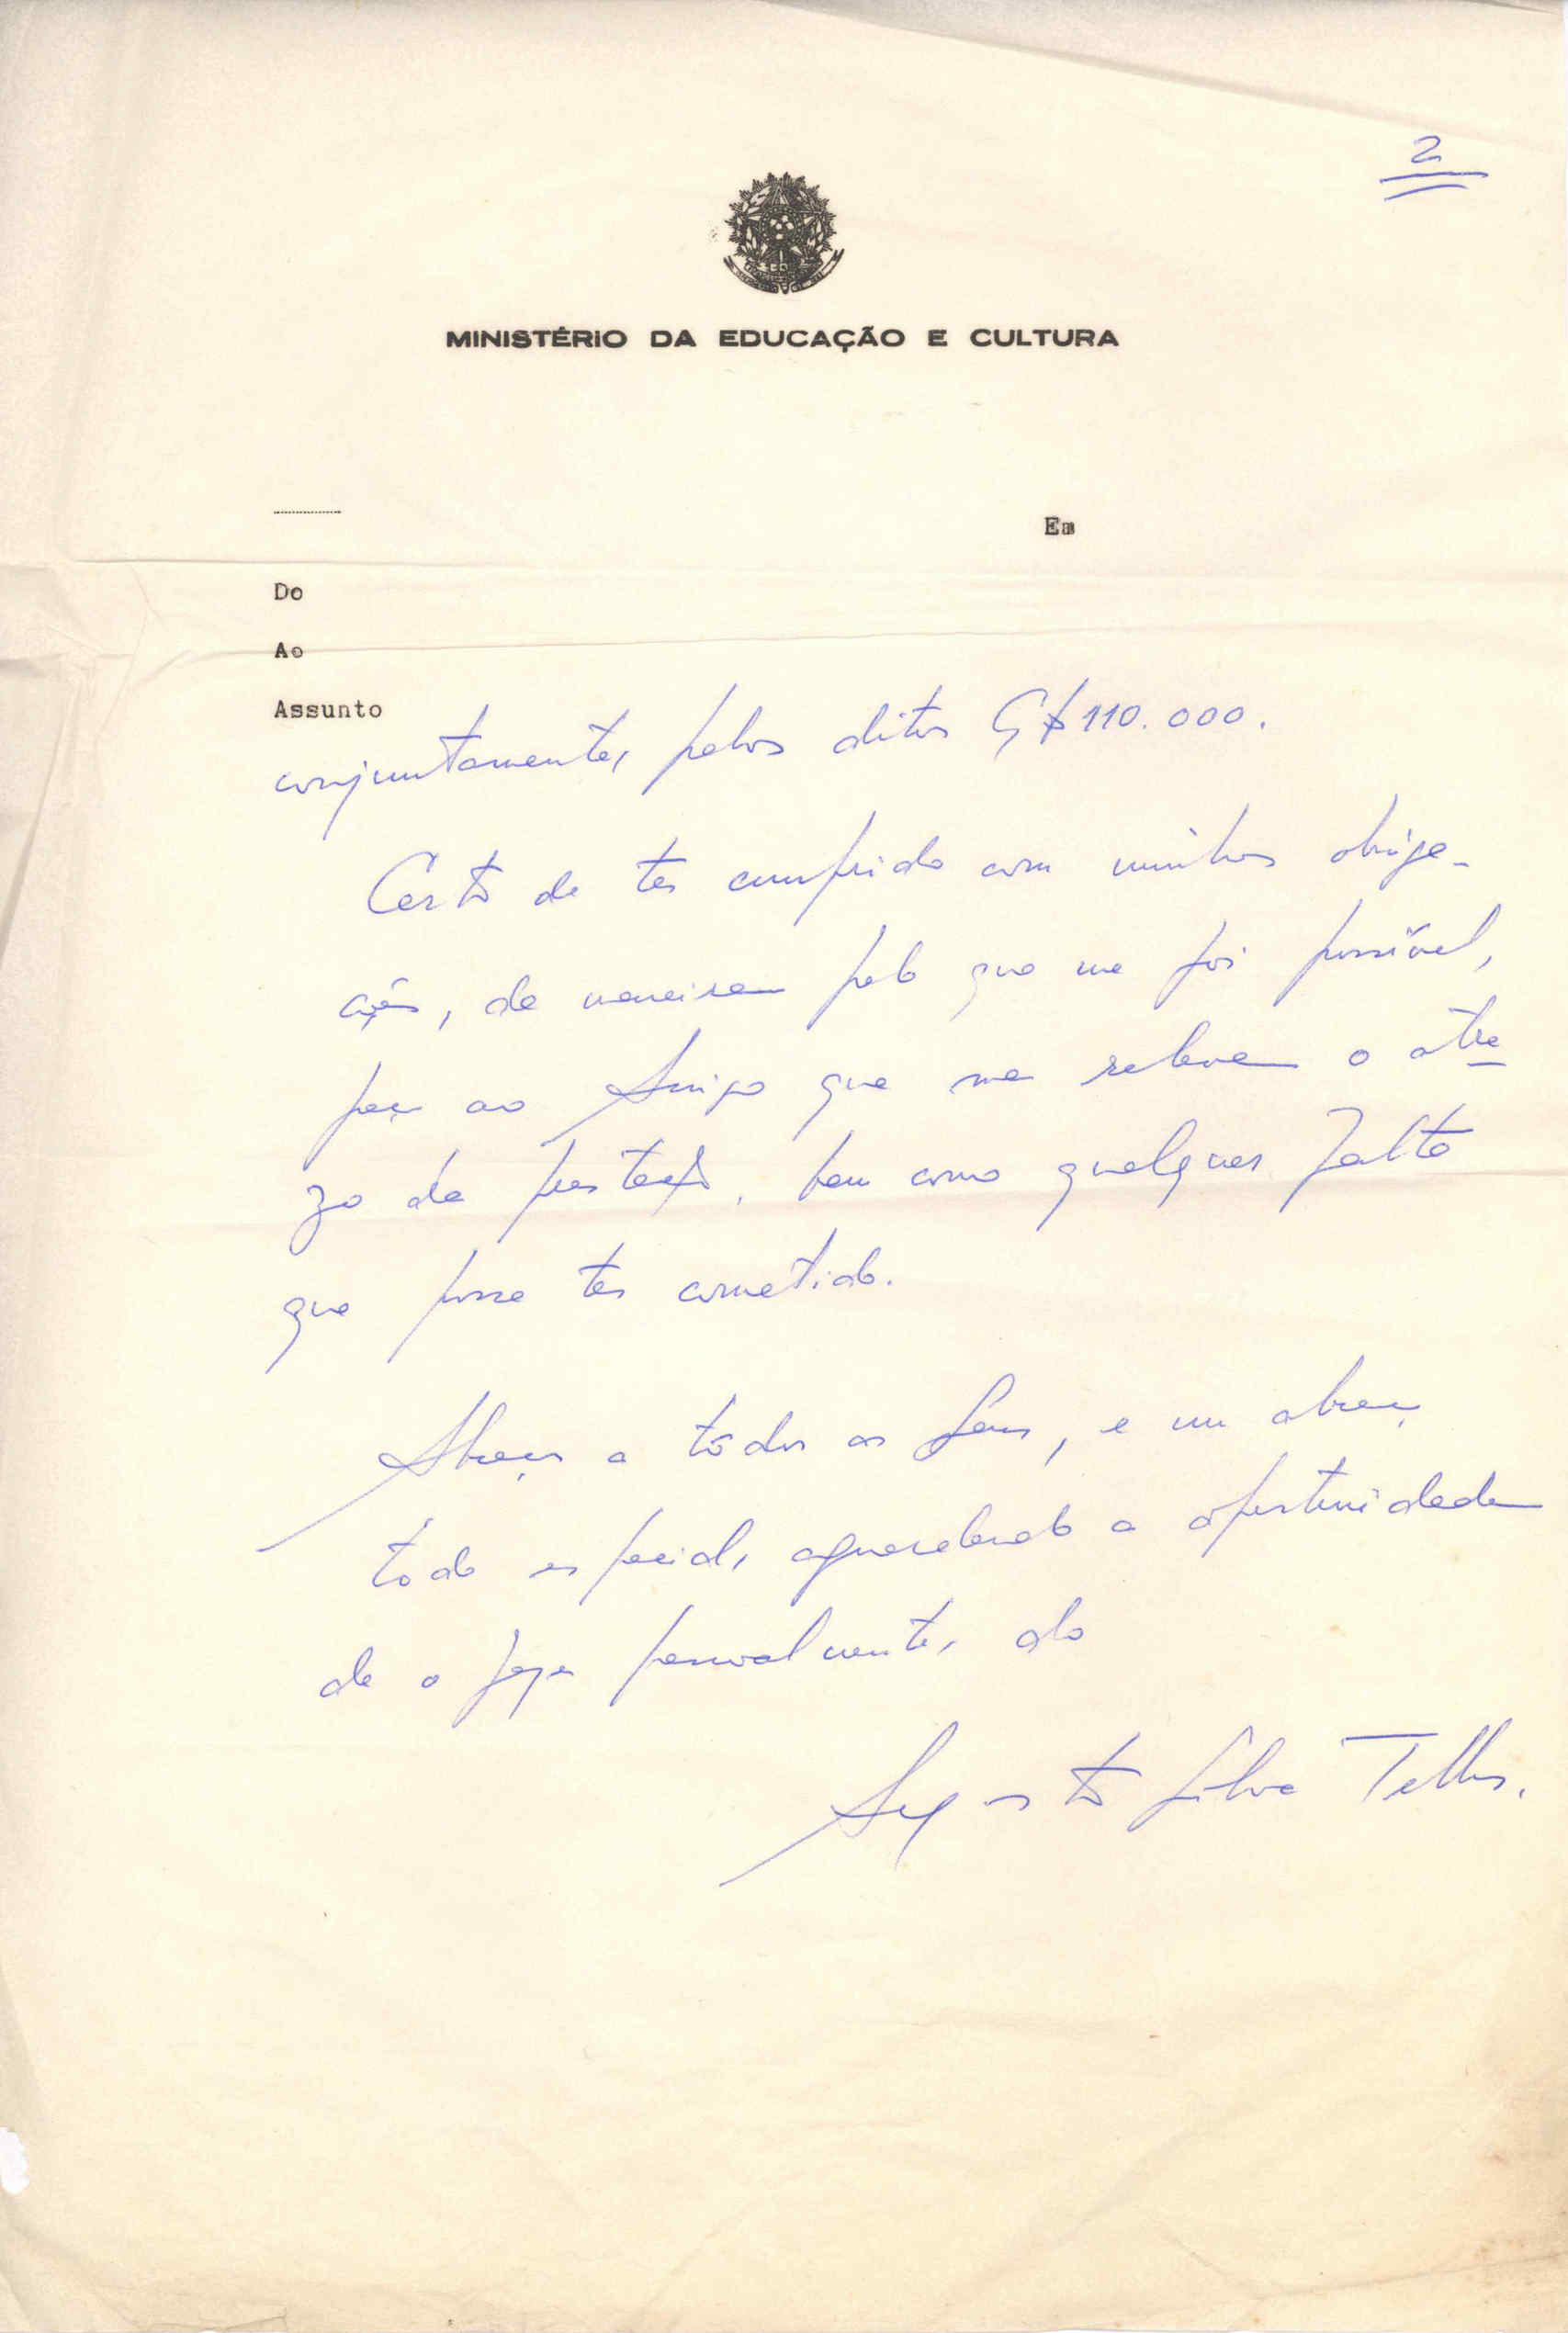 2
MINISTÉRIO DA EDUCAÇÃO E CULTURA
Em
Do
Ao
Assunto
conjuntamente, pelos ditos Cr$ 110.000.
Certo de ter cumprido com minhas obriga-
ções, de maneira pelo que me foi possível,
peço ao Amigo que me releve o atra
zo de prestação, bem como qualquer falta
que posse ter cometido.
Abraços a todos os seus, e um abraço
todo especial, aguardando a oportunidade
de o fazer pessoalmente, do
Augusto Silva Telles.